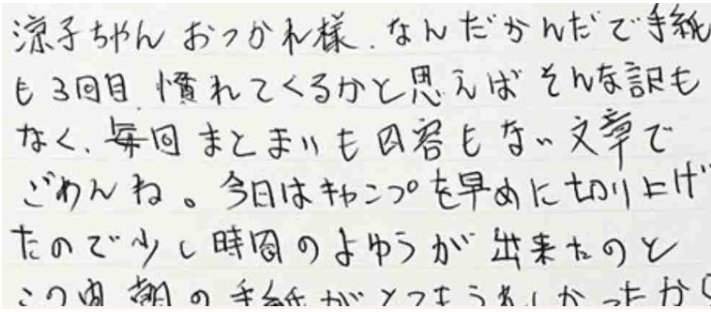 涼子ちゃん おつかれ様. なんだかんだで手紙
も3回目 慣れてくるかと思えば そんな訳も
なく、毎回 まとまりも内容もない文章で
ごめんね。今日はキャンプを早めに切り上げ
たので少し時間のよゆうが出来たのと
この間 朝の手紙がとってもうれしかったから